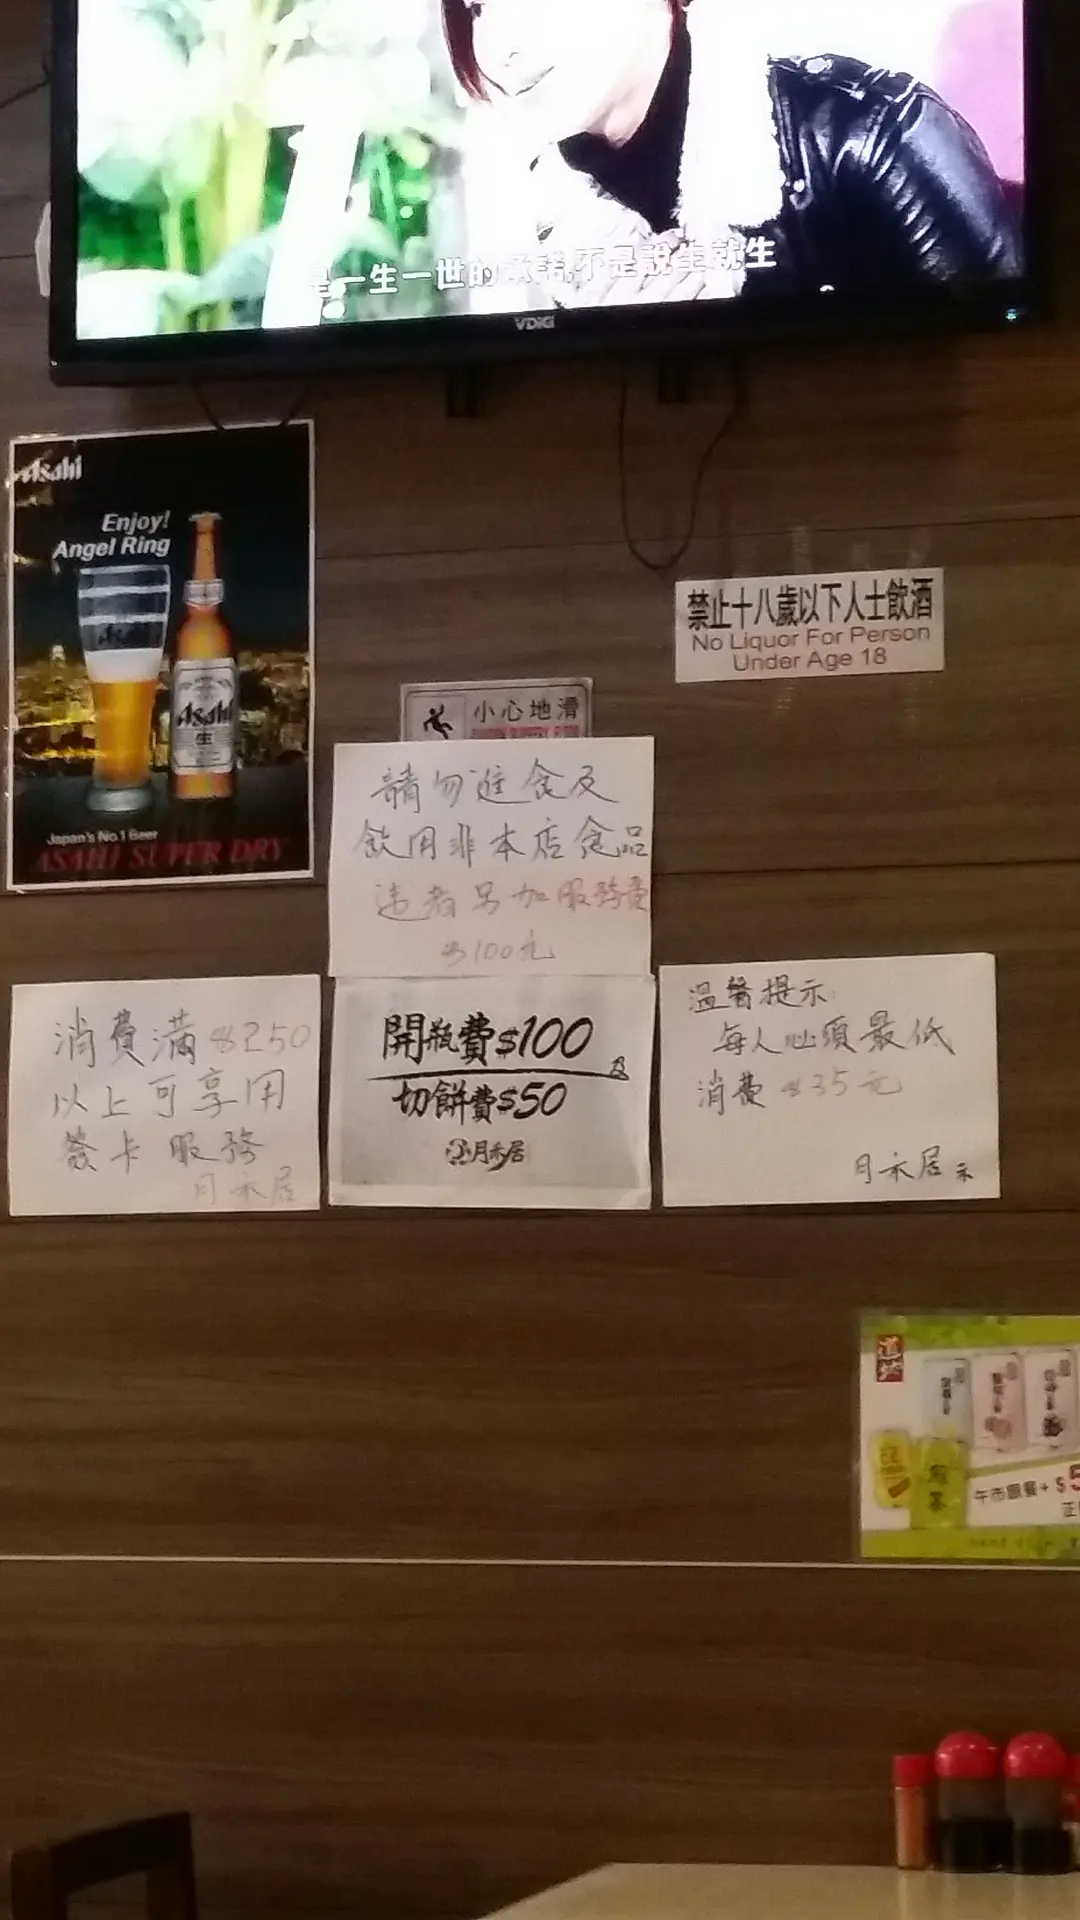 是一生一世的承諾,不是說生就生
VDiGi
Asahi
Enjoy!
Angel Ring
Asahi
Asahi
生
Japan's No.1 Beer
ASAHI SUPER DRY
禁止十八歲以下人士飲酒
No Liquor For Person
Under Age 18
小心地滑
請勿進食及
飲用非本店食品
违者另加服務費
$100元
消費滿$250
以上可享用
簽卡服務
月禾居
開瓶費$100
及
切餅費$50
月禾居
溫馨提示:
每人必須最低
消費$35元
月禾居示
道地
午市跟餐+$5
正